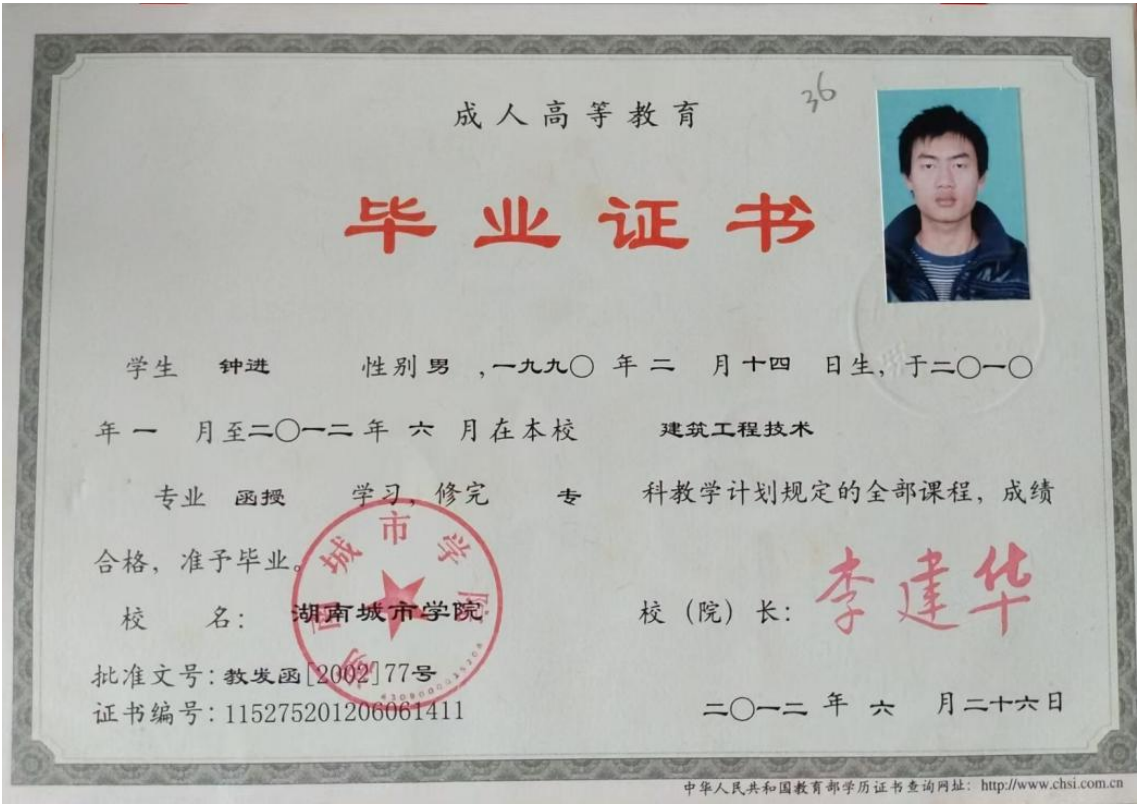 36
成人高等教育
毕业证书
学生 钟进 性别 男 ,一九九〇 年 二 月 十四 日生, 于二〇一〇
年 一 月至二〇一二 年 六 月在本校 建筑工程技术
专业 函授 学习, 修完 专 科教学计划规定的全部课程, 成绩
合格, 准予毕业。
湖南城市学院
校 名: 湖南城市学院 校 (院) 长: 李建华
批准文号: 教发函[2002]77号
证书编号: 115275201206061411
二〇一二 年 六 月二十六日
中华人民共和国教育部学历证书查询网址: http://www.chsi.com.cn